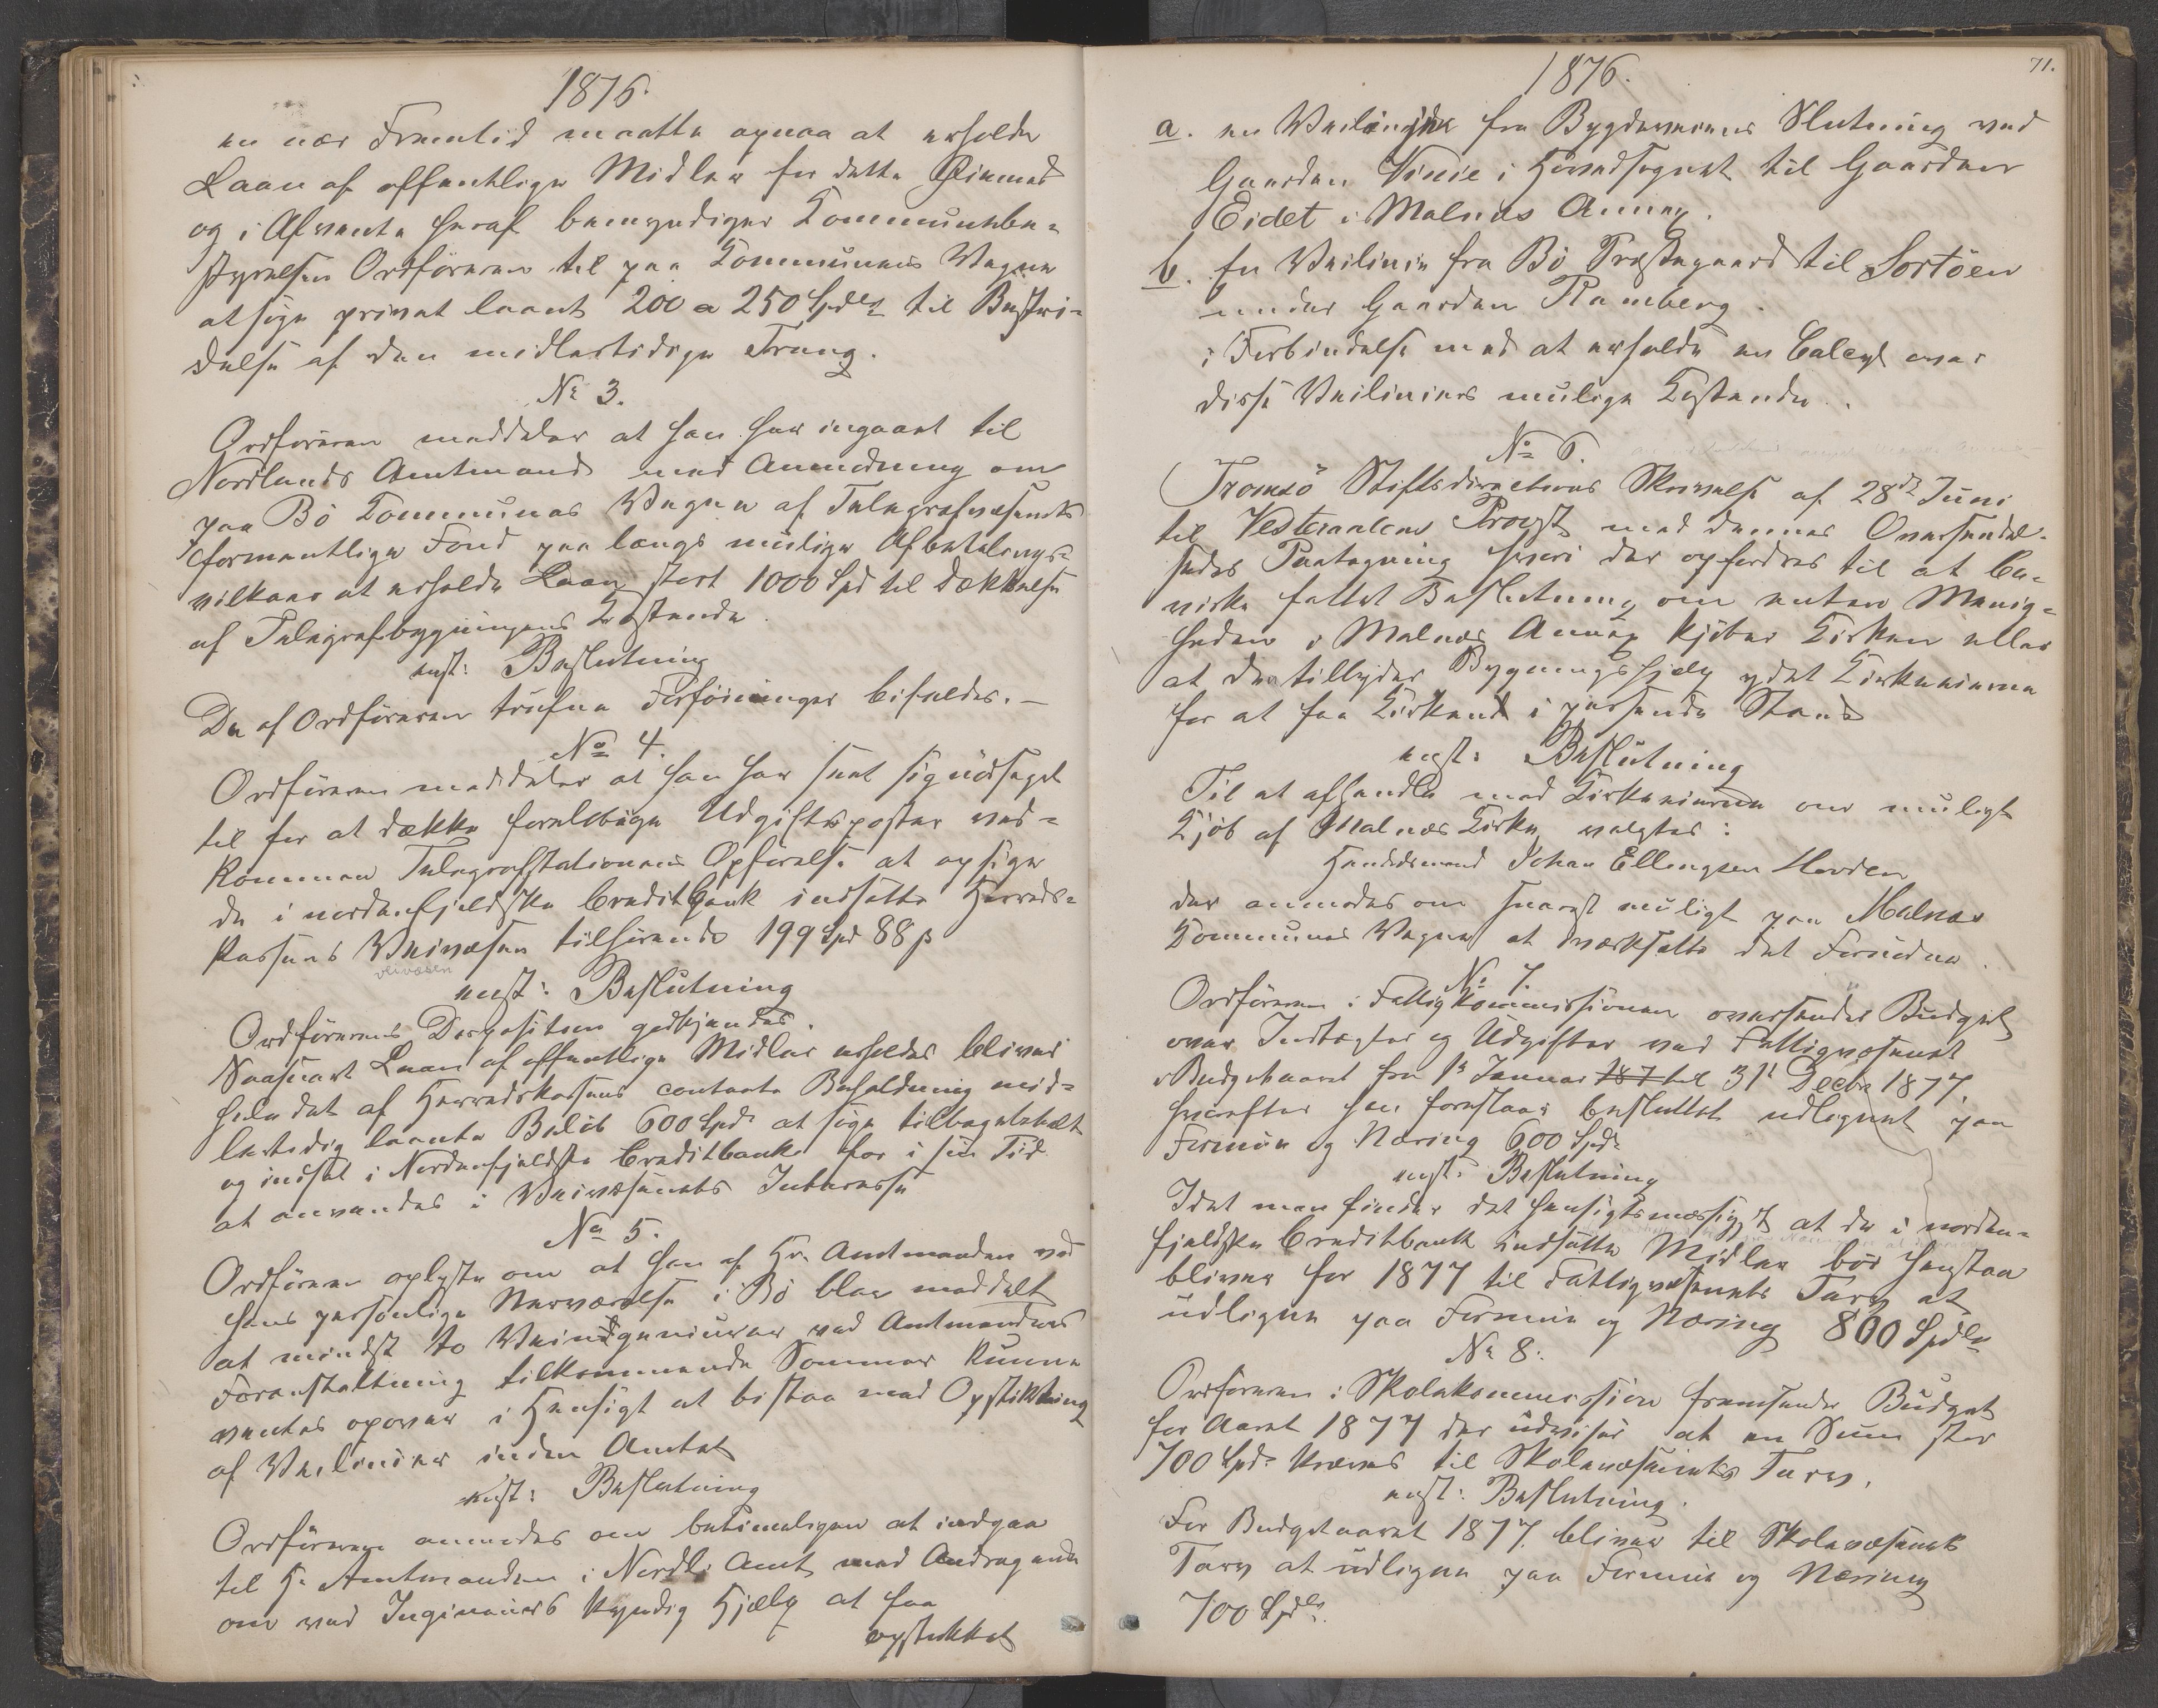 1876.
en nær Fremtid maatte opnaa at erholde
Laan af offentlige Midler for dette Øiemed
og i Afvente heraf bemyndiger Kommunebe=
styrelsen Ordföreren til paa Kommunens Vegne
at söge privat laant 200 a 250 Spdlr til Bestri=
delse af den midlertidige Trang.
No 3.
Ordföreren meddeler at han har ingaaet til
Nordlands Amtmand med Anmodning om
paa Bö Kommunes Vegne af Telegrafvæsenets
formentlige Fond paa længst mulige Afbetalings=
vilkaar at erholde Laan stort 1000 Spd til Dækkelse
af Telegrafbygningens Kostende.
enst: Beslutning
De af Ordföreren trufne Forföininger bifaldes. –
No 4.
Ordföreren meddeler at han har seet sig nödsaget
til for at dække forelöbige Udgiftsposter ved=
kommen Telegrafstationens Opförelse at opsige
de i nordenfjeldske Creditbank indsatte Herreds=
kassens Veivæsen tilhörende 199 Spd 88 s
veivæsen
enst: Beslutning
Ordförerens Disposition godkjendes.
Saasnart Laan af offentlige Midler erholdes bliver
hele det af Herredskassens contante Beholdning mid=
lertidig laante Belöb 600 Spd. at söge tilbagebetalt
og indsat i Nordenfjeldske Creditbank for i sin Tid
at anvendes i Veivæsenets Interesse
No 5.
Ordföreren oplyste om at han af Hr. Amtmanden ved
hans personlige Nærværelse i Bö blev meddelt
at mindst to Veiingeniörer ved Amtmandens
Foranstaltning tilkommende Sommer kunne
ventes opover i Hensigt at bistaa med Opstikning
af Veilinier inden Amtet
enst: Beslutning
Ordföreren anmodes om betimeligen at indgaa
til Hr. Amtmanden i Nordl: Amt med Andragende
om ved Ingeniörs kyndig Hjælp at faa
opstukket
71.
1876.
a. en Veilinie fra Bygdeveiens Slutning ved
Gaarden Vinie i Hovedsognet til Gaarden
Eidet i Malnæs Annex.
b. En Veilinie fra Bö Præstegaard til Sortöen
under Gaarden Ramberg.
i Forbindelse med at erholde en Calcyl over
disse Veiliniers mulige Kostende.
No 6.
Tromsö Stiftsdirections Skrivelse af 28de Juni
til Vesteraalens Provst med dennes Oversendel=
sedes Paategning hvori der opfordres til at be=
virke fattet Beslutning om enten Menig=
heden i Malnæs Annex kjöber Kirken eller
at der tilbydes Bygningshjælp ydet Kirkeeierne
for at faa Kirken i passende Stand
enst: Beslutning
Til at afhandle med Kirkeeierne om muligt
Kjöb af Malnæs Kirke, valgtes:
Handelsmand Johan Ellingsen Hovden
der anmodes om snarest muligt paa Malnæs
Kommunes Vegne at iværksætte det Fornödne.
No 7.
Ordföreren i Fattigkommissionen oversender Budget
over Indtægter og Udgifter ved Fattigvæsenet
i Budgetaaret fra 1ste Januar 187 til 31te Decbr 1877,
hvorefter han foreslaar besluttet udlignet paa
Formue og Næring 600 Spd.
enst: Beslutning
Idet man finder det hensigtsmæssigst at de i norden=
fjeldske Creditbank indsatte Midler bör henstaa
bliver for 1877 til Fattigvæsenets Tarv at
udligne paa Formue og Næring 800 Spdlr
No 8:
Ordföreren i Skolekommission fremsender Budget
for Aaret 1877 der udviser at en Sum stor
700 Spd. kræves til Skolevæsenets Tarv.
enst: Beslutning.
For Budgetaaret 1877. bliver til Skolevæsenets
Tarv at udligne paa Formue og Næring
700 Spdlr.